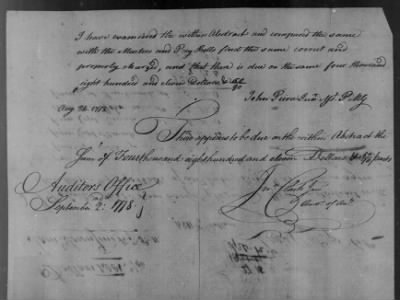 I have examined the within Abstract and compared the same
with the Musters and Pay Rolls find the same correct and
properly charged, and that there is due on the same four thousand
eight hundred and eleven Dollars &
Aug 24. 1778.
John Pierce
There appears to be due on the within Abstract the
Sum of Four thousand eight hundred and eleven Dollars &
Auditors Office
September 2d: 1778.
Clark